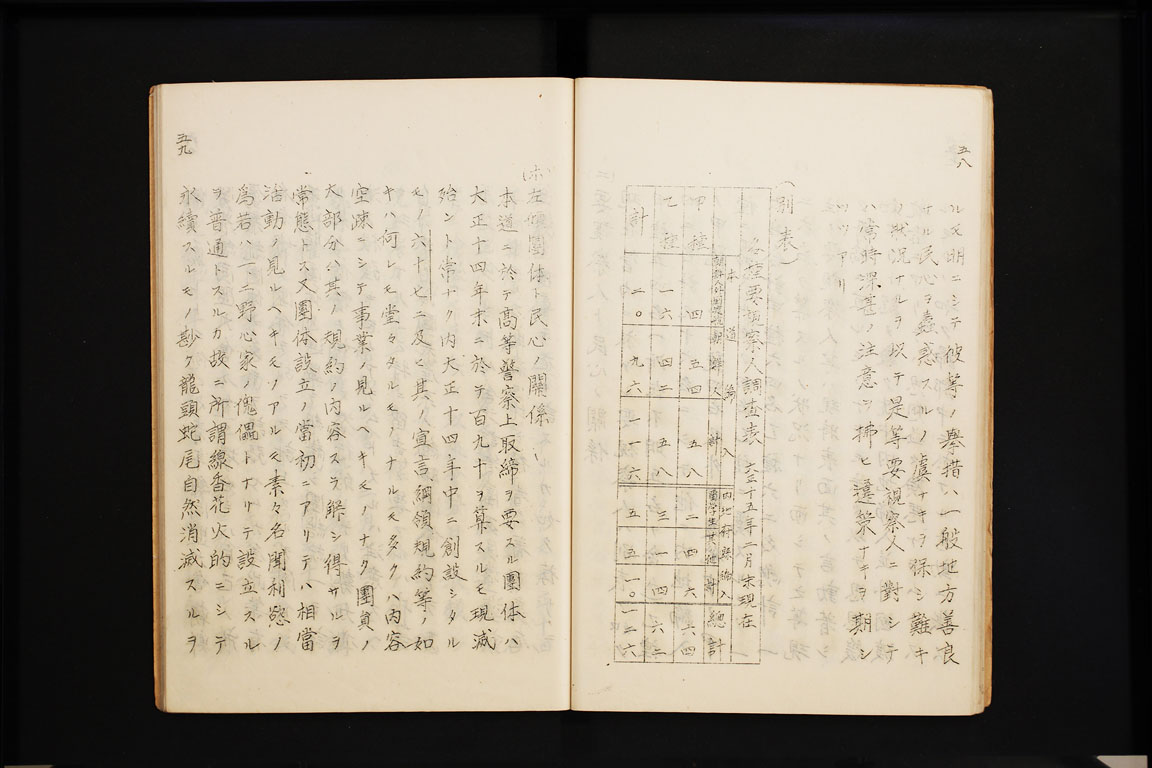 五八
ルヤ明ニシテ彼等ノ擧措ハ一般地方善良
ナル民心ヲ蠱惑スルノ虞ナキヲ保シ難キ
状況ナルヲ以テ是等要視察人ニ對シテ
ハ常時深甚ノ注意ヲ拂ヒ違策ナキヲ期シ
ツツアリ
(別表)
各種要視察人調査表 大正十五年二月末現在
本道 鮮人 計
内地府縣 留學生 其他 計
總計
甲種 四 五四 五八 二 四 六 六四
乙種 一六 四二 五八 三 一 四 六二
計 二〇 九六 一一六 五 五 一〇 一二六
五九
(ホ)左傾團体ト民心ノ關係
本道ニ於テ高等警察上取締ヲ要スル團体ハ
大正十四年末ニ於テ百九十ヲ算スルモ現滅
殆ント常ナク内大正十四年中ニ創設シタル
モノ六十七ニ及ヒ其ノ宣言綱領規約等ノ如
キハ何レモ堂々タルモノナルモ多クハ内容
空疎ニシテ事業ノ見ルヘキモノナク團員ノ
大部分ハ其ノ規約ノ内容スラ解シ得サルヲ
常態トス又團体設立ノ當初ニアリテハ相當
活動ノ見ルヘキモノアルモ素々名聞利慾ノ
爲若ハ一、二野心家ノ傀儡トナリテ設立スル
ヲ普通トスルカ故ニ所謂線香花火的ニシテ
永續スルモノ尠ク龍頭蛇尾自然消滅スルヲ